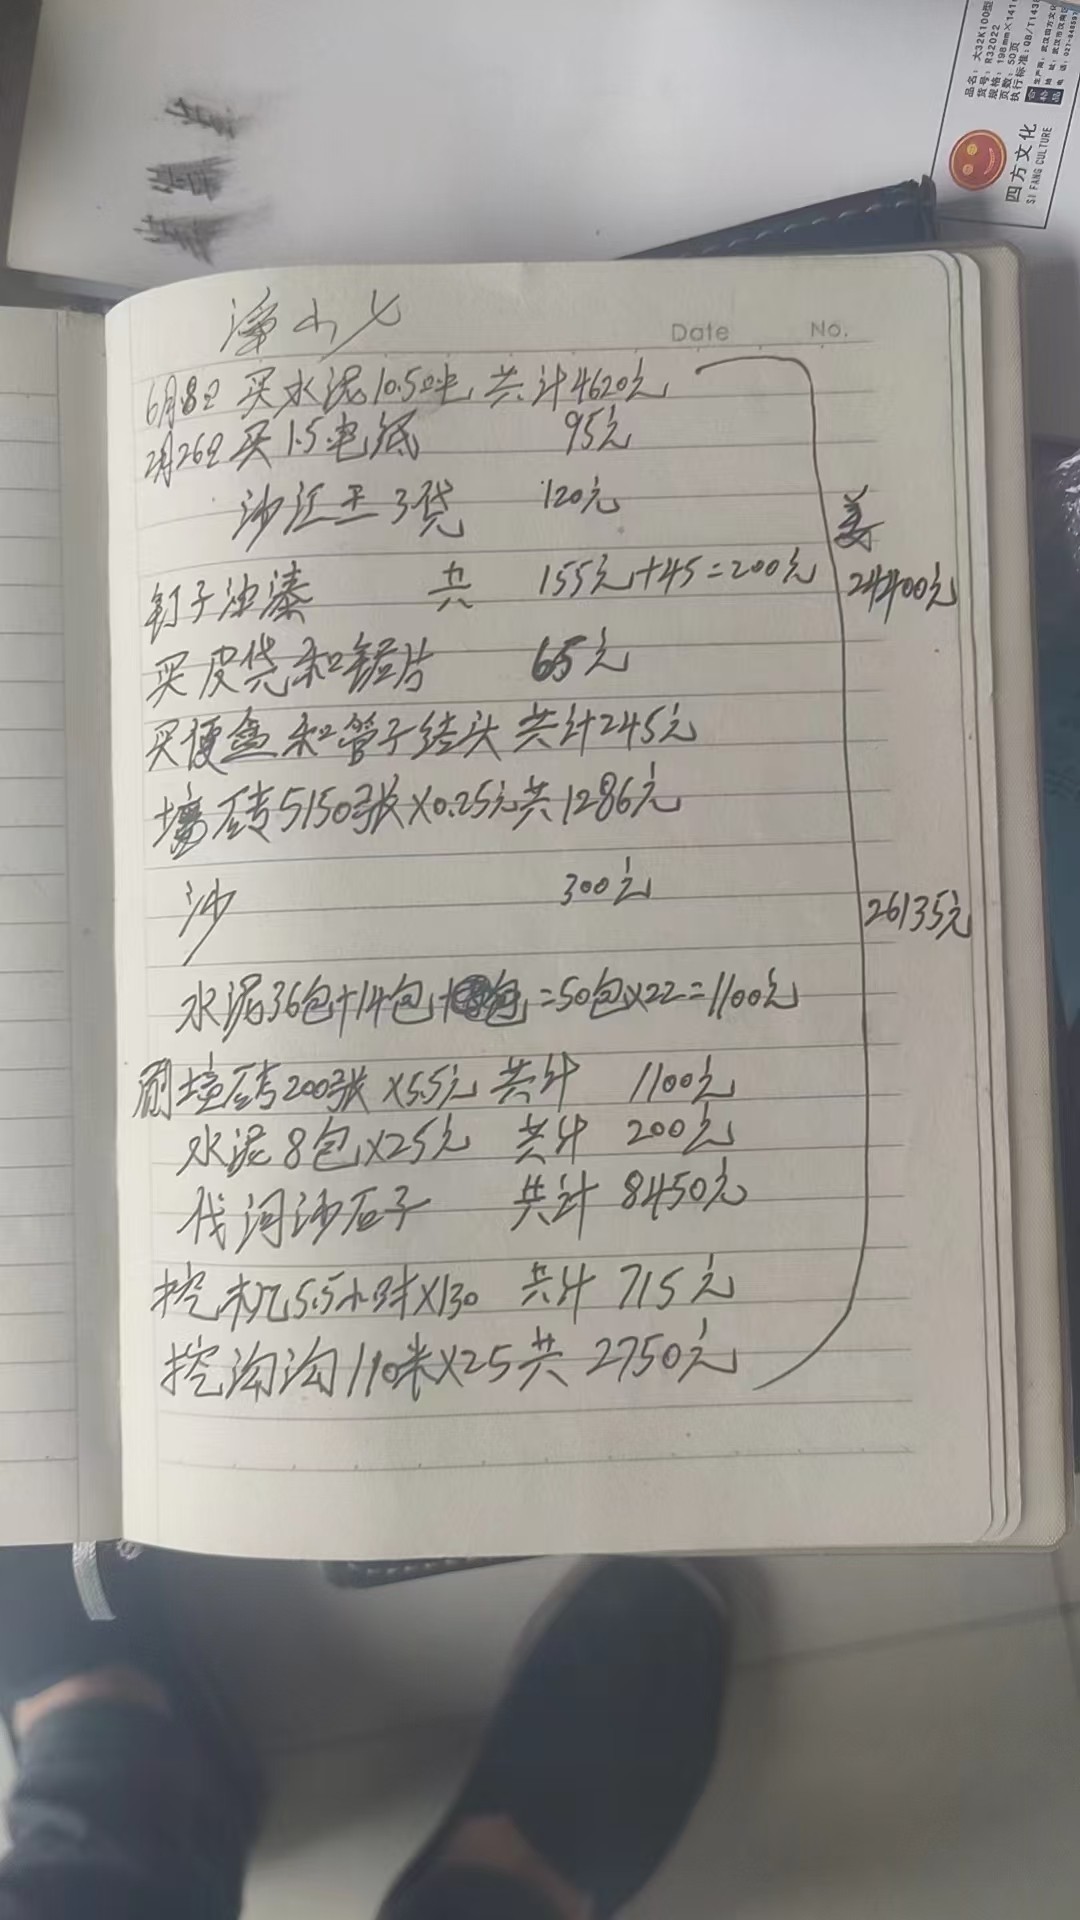 品名：大32K100型
货号：R32022
规格：198mm×141
页数：50页
执行标准：QB/T1438
合格品
四方文化
SI FANG CULTURE
Date No.
6月8日 买水泥10.5吨 共计4620元
2月26日买1.5电 95元
沙 3袋 120元
姜
钉子油漆 共 155元+45=200元
24400元
买皮袋和锯片 65元
买便盒和管子结头 共计245元
墙砖5150张×0.25元共1286元
沙 300元
26135元
水泥36包+14包+ 包=50包×22=1100元
墙砖200张×5.5元 共计 1100元
水泥8包×25元 共计 200元
河沙石子 共计 8450元
挖机5.5小时×130 共计 715元
挖沟沟110米×25共 2750元